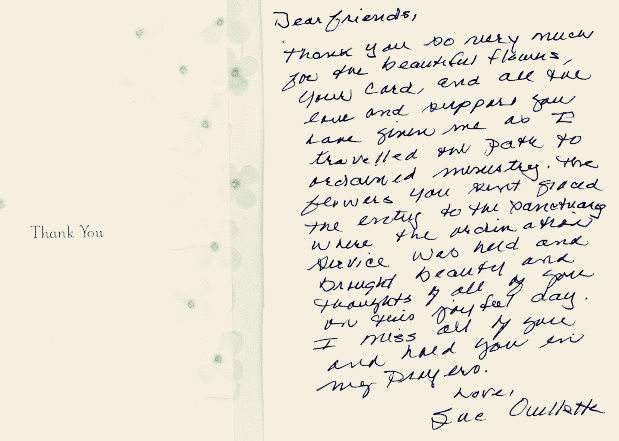 Thank You
Dear friends,
Thank you so very much
for the beautiful flowers,
your card, and all the
love and support you
have given me as I
travelled the path to
ordained ministry. The
flowers you sent graced
the entry to the sanctuary
where the ordination
service was held and
brought beauty and
thoughts of all of you
on this joyful day.
I miss all of you
and hold you in
my prayers.
Love,
Sue Ouellette